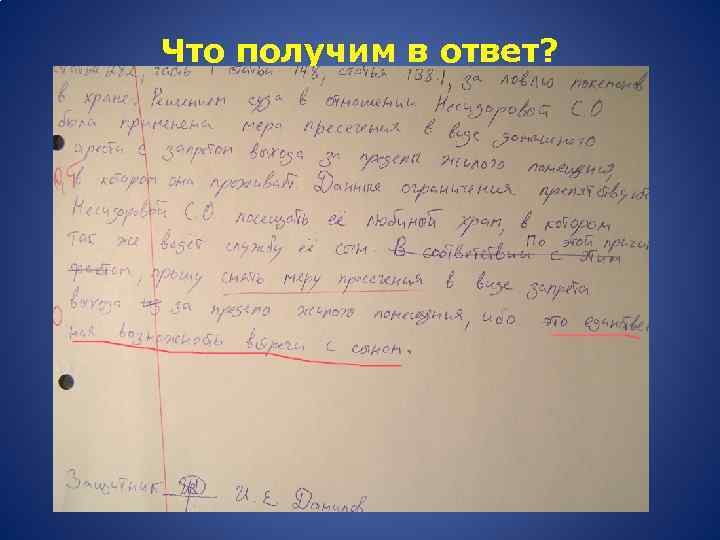 Что получим в ответ?
статьи 282, часть 1 статьи 148, статья 138.1, за ловлю покемонов
в храме. Решением суда в отношении Несидоровой С.О
была применена мера пресечения в виде домашнего
ареста с запретом выхода за пределы жилого помещения,
в котором она проживает. Данные ограничения препятствуют
Несидоровой С.О посещать её любимой храм, в котором
так же ведет службу её сын. В соответствии с этим По этой причи
фактом, прошу снять меру пресечения в виде запрета
выхода из за предела жилого помещения, ибо это единствен
ная возможность встречи с сыном.
Защитник И.Е Данилов